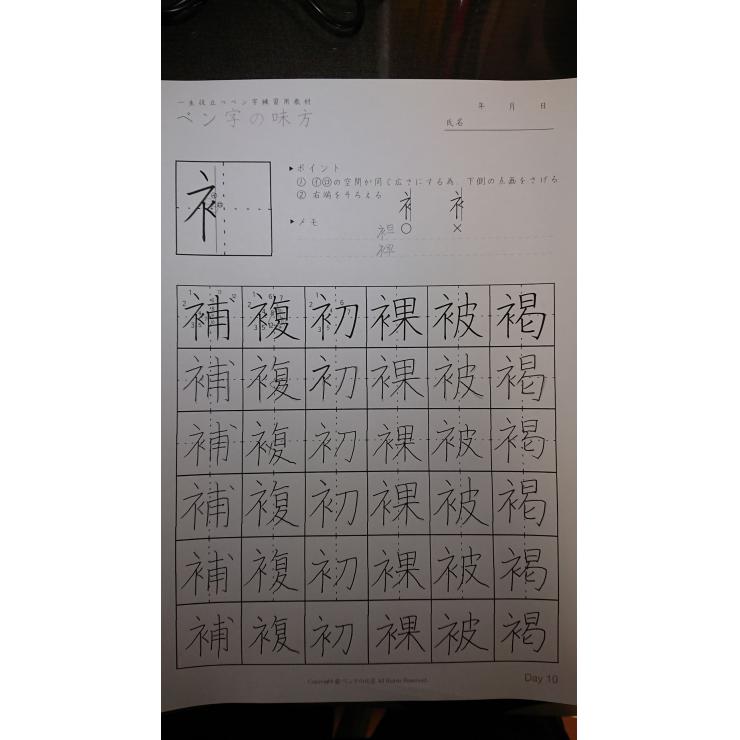 一生役立つペン字練習用教材
ペン字の味方
年 月 日
氏名
▶ポイント
① ㋑㋺の空間が同じ広さにする為、下側の点画をさげる
② 右端をそろえる
▶メモ
袒 ○ ×
裨
補 複 初 裸 被 褐
補 複 初 裸 被 褐
補 複 初 裸 被 褐
補 複 初 裸 被 褐
補 複 初 裸 被 褐
補 複 初 裸 被 褐
Copyright @ ペン字の味方 All Rights Reserved.
Day 10